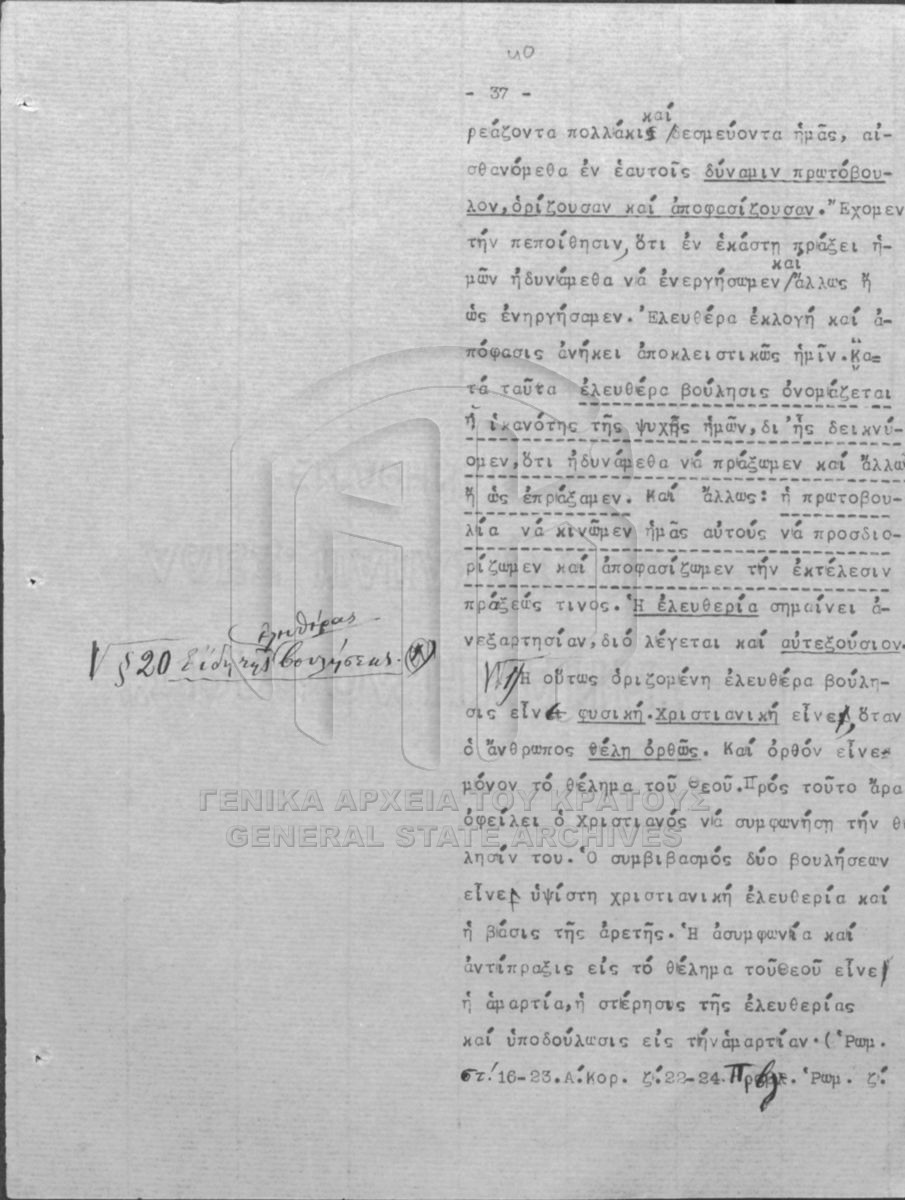 40
- 37 -
καί
ρεάζοντα πολλάκις /δεσμεύοντα ἡμᾶς, αἰ-
σθανόμεθα ἐν ἑαυτοῖς δύναμιν πρωτόβου-
λον, ὁρίζουσαν καί ἀποφασίζουσαν. Ἔχομεν
τήν πεποίθησιν, ὅτι ἐν ἑκάστη πράξει ἡ-
καί
μῶν ἠδυνάμεθα νά ἐνεργήσωμεν/ἄλλως ἤ
ὡς ἐνηργήσαμεν. Ἐλευθέρα ἐκλογή καί ἀ-
πόφασις ἀνήκει ἀποκλειστικῶς ἡμῖν. Κα=
τά ταῦτα ἐλευθέρα βούλησις ὀνομάζεται
ἡ ἱκανότης τῆς ψυχῆς ἡμῶν, δι᾽ἧς δεικνύ-
ομεν, ὅτι ἠδυνάμεθα νά πράξωμεν καί ἄλλω
ἤ ὡς ἐπράξαμεν. Καί ἄλλως: ἡ πρωτοβου-
λία νά κινῶμεν ἡμᾶς αὐτούς νά προσδιο-
ρίζωμεν καί ἀποφασίζωμεν τήν ἐκτέλεσιν
πράξεώς τινος. Ἡ ἐλευθερία σημαίνει ἀ-
νεξαρτησίαν, διό λέγεται καί αὐτεξούσιον.
ἐλευθέρας
§ 20 Εἴδη τῆς βουλήσεως.
1) Ἡ οὕτως ὁριζομένη ἐλευθέρα βούλη-
σις εἶνε φυσική. Χριστιανική εἶνε, ὅταν
ὁ ἄνθρωπος θέλη ὀρθῶς. Καί ὀρθόν εἶνε
μόνον τό θέλημα τοῦ Θεοῦ. Πρός τοῦτο ἄρα
ΓΕΝΙΚΑ ΑΡΧΕΙΑ ΤΟΥ ΚΡΑΤΟΥΣ
ὀφείλει ὁ Χριστιανός νά συμφωνήση τήν θ
GENERAL STATE ARCHIVES
λησίν του. Ὁ συμβιβασμός δύο βουλήσεων
εἶνε ὑψίστη χριστιανική ἐλευθερία καί
ἡ βάσις τῆς ἀρετῆς. Ἡ ἀσυμφωνία καί
ἀντίπραξις εἰς τό θέλημα τοῦΘεοῦ εἶνε
ἡ ἁμαρτία, ἡ στέρησις τῆς ἐλευθερίας
καί ὑποδούλωσις εἰς τήνἁμαρτίαν. (Ῥωμ.
στ! 16-23. Α! Κορ. ζ! 22-24. Πρβλ. Ῥωμ. ζ!